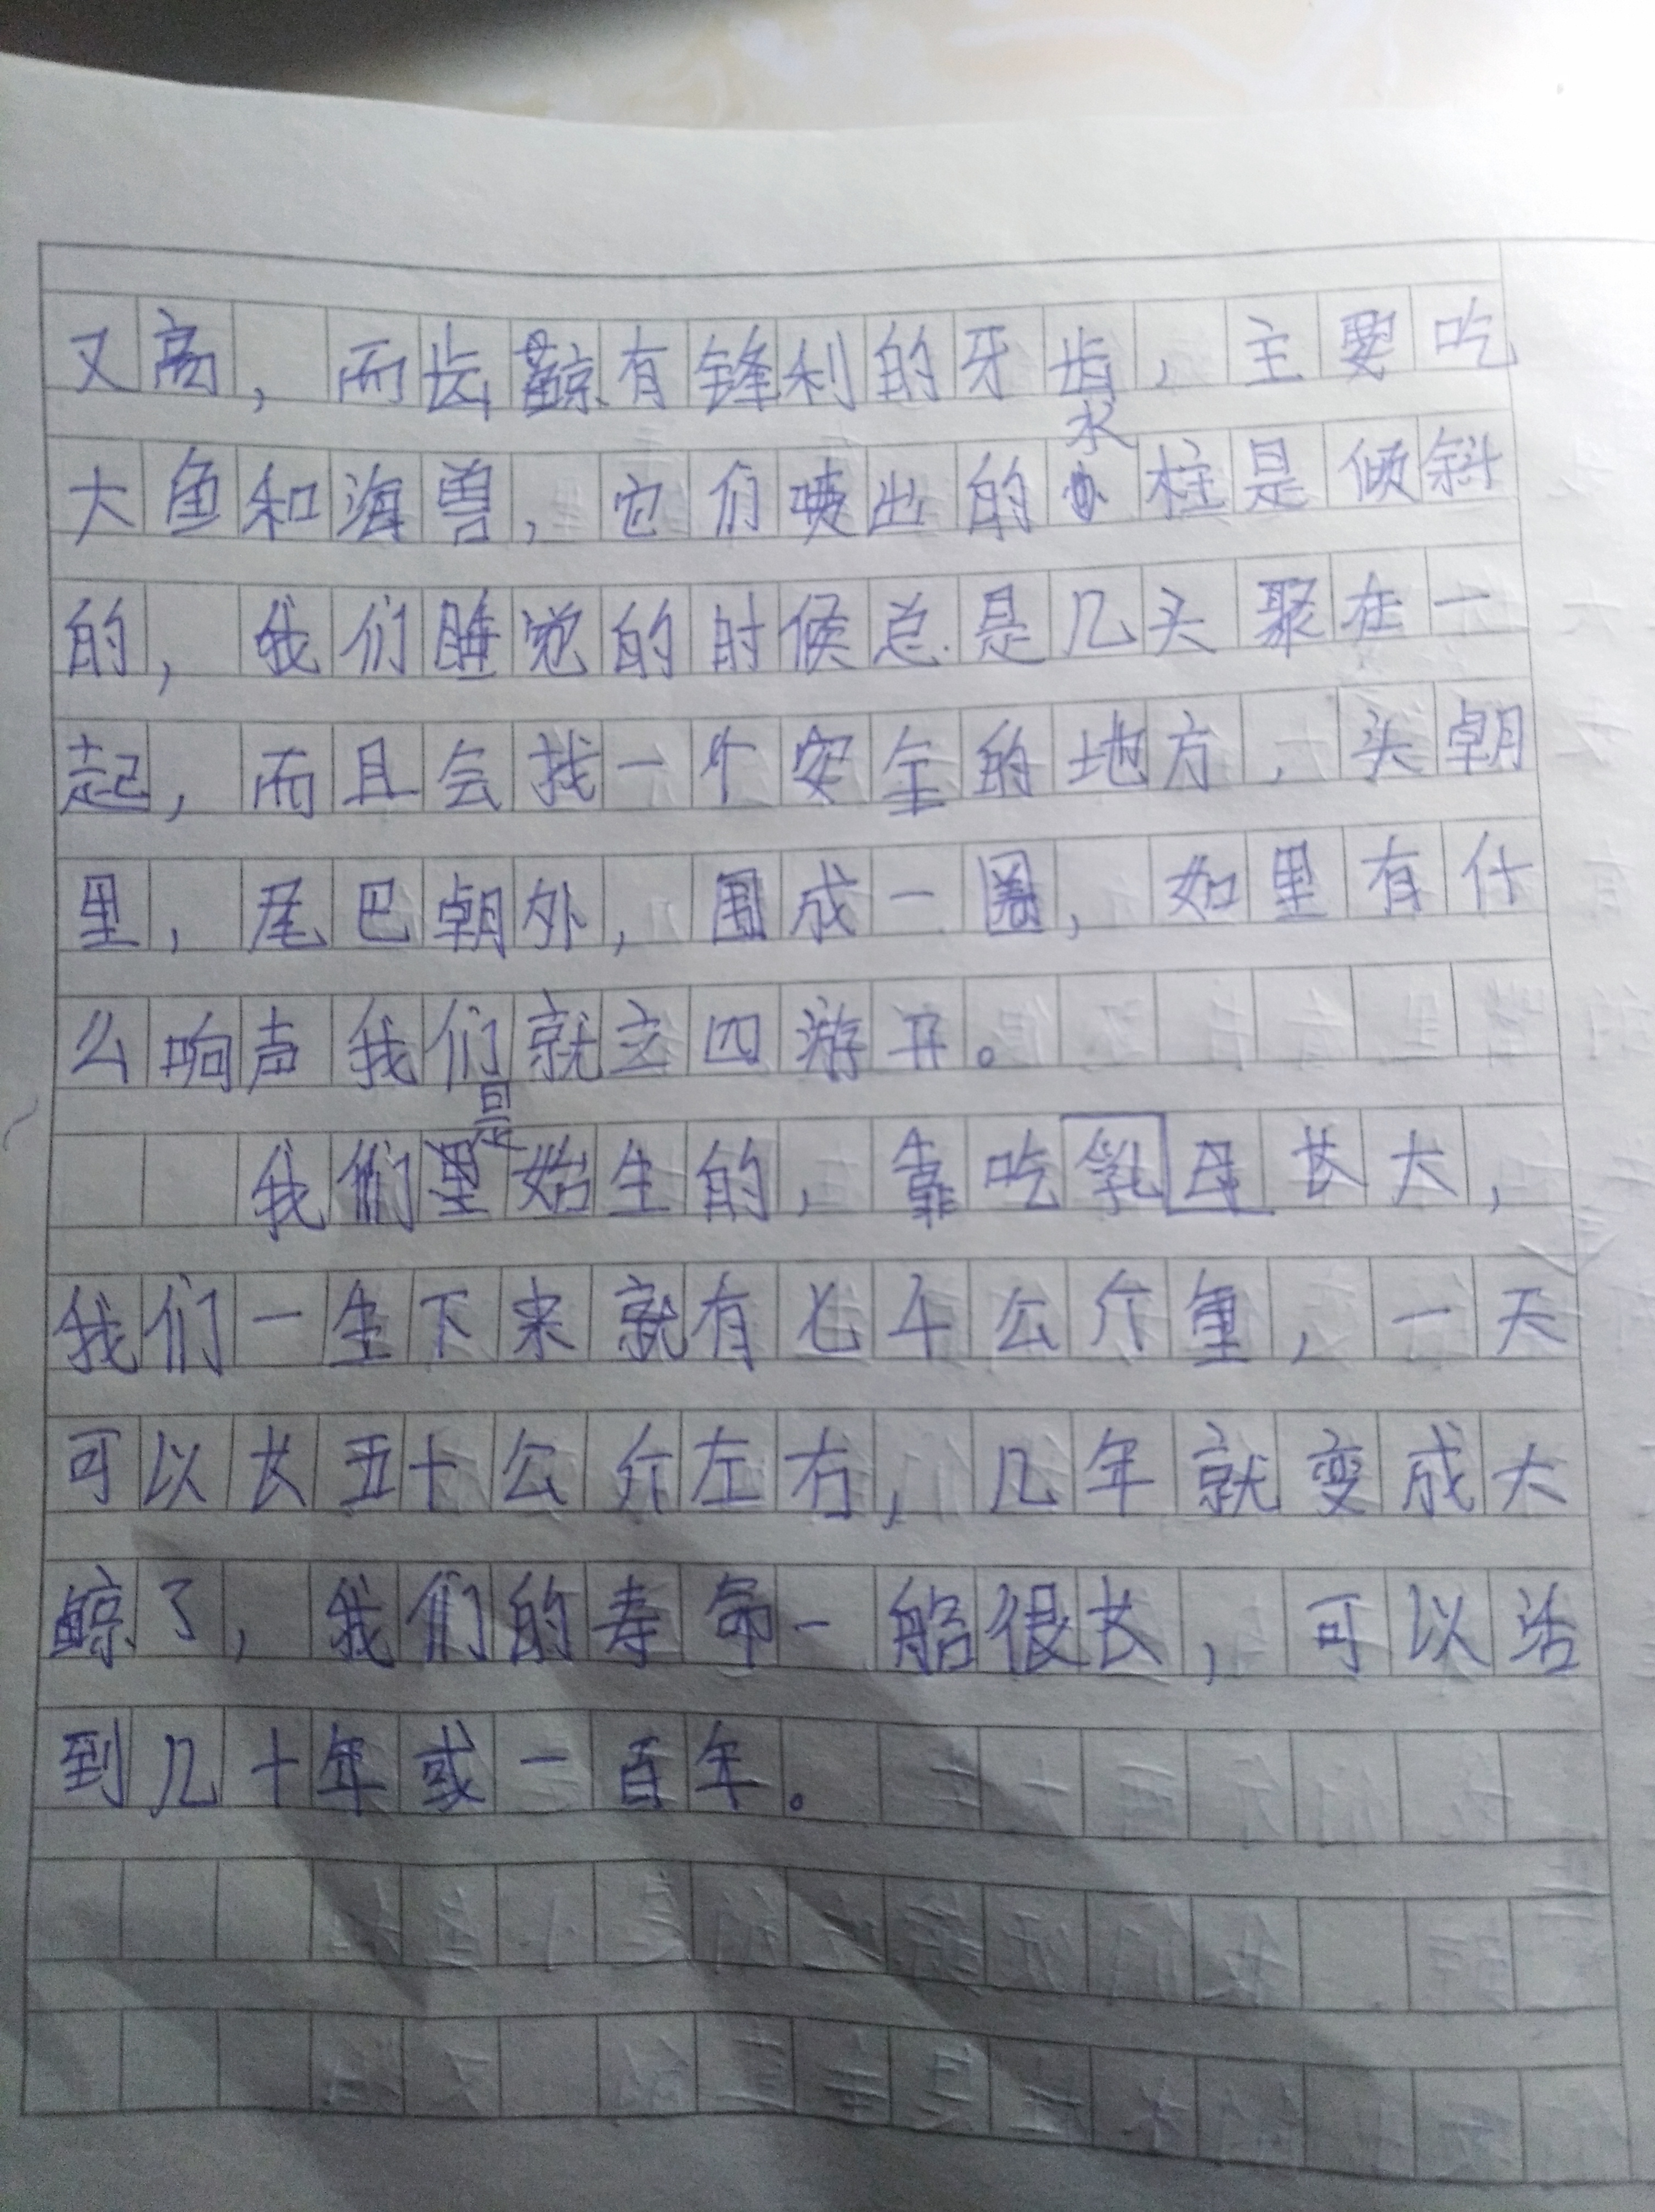 又高，而齿鲸有锋利的牙齿，主要吃
大鱼和海兽，它们喷出的水柱是倾斜
的，我们睡觉的时候总是几头聚在一
起，而且会找一个安全的地方，头朝
里，尾巴朝外，围成一圈，如里有什
么响声我们就立四游开。
我们是始生的，靠吃乳母长大，
我们一生下来就有七千公斤重，一天
可以长五十公斤左右，几年就变成大
鲸了，我们的寿命一船很长，可以活
到几十年或一百年。